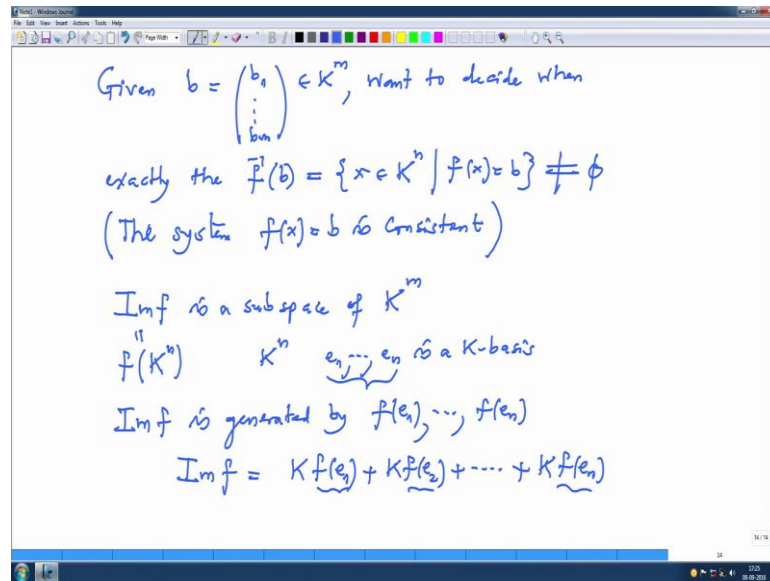 Note1 - Windows Journal
File Edit View Insert Actions Tools Help
Page Width
Given b = (b₁ ⋮ bₘ) ∈ K^m, want to decide when
exactly the f⁻¹(b) = {x ∈ K^n | f(x) = b} ≠ ϕ
(The system f(x) = b is consistant)
Im f is a subspace of K^m
"
f(K^n) K^n e₁, ..., eₙ is a K-basis
Im f is generated by f(e₁), ..., f(eₙ)
Im f = K f(e₁) + K f(e₂) + .... + K f(eₙ)
14/14
14
17:25
08-09-2016